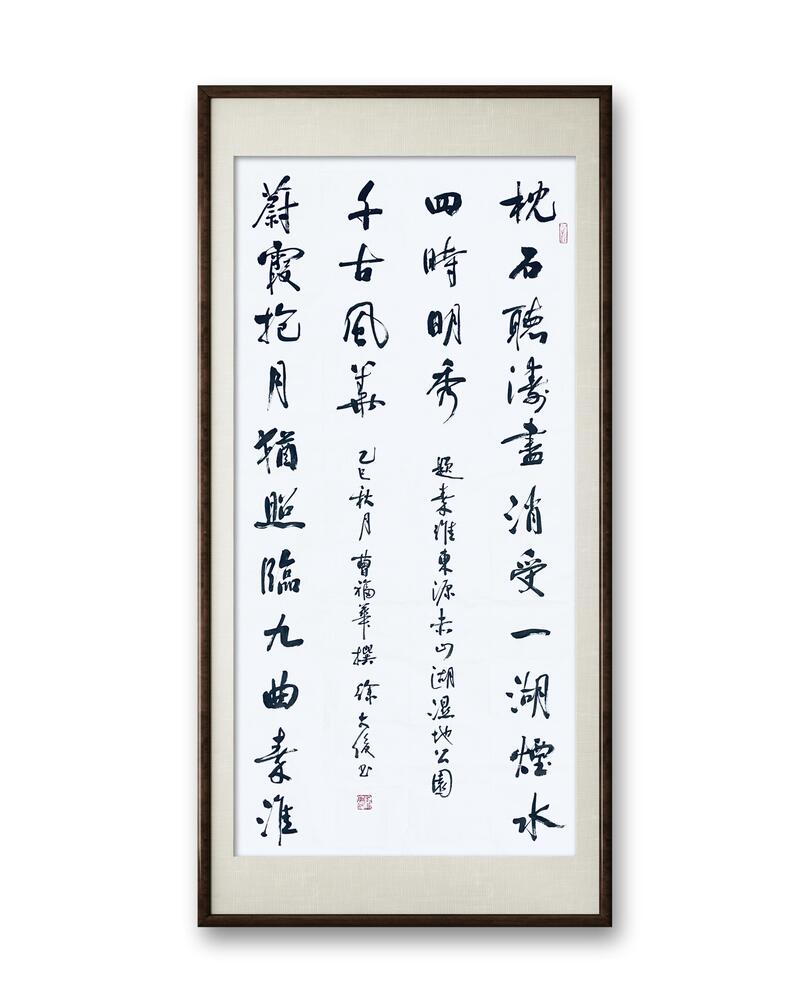 枕石聽濤盡消受一湖煙水
四時明秀
蔚霞抱月猶照臨九曲秦淮
千古風華
題秦淮東源赤山湖濕地公園
乙巳秋月曹福華撰徐书